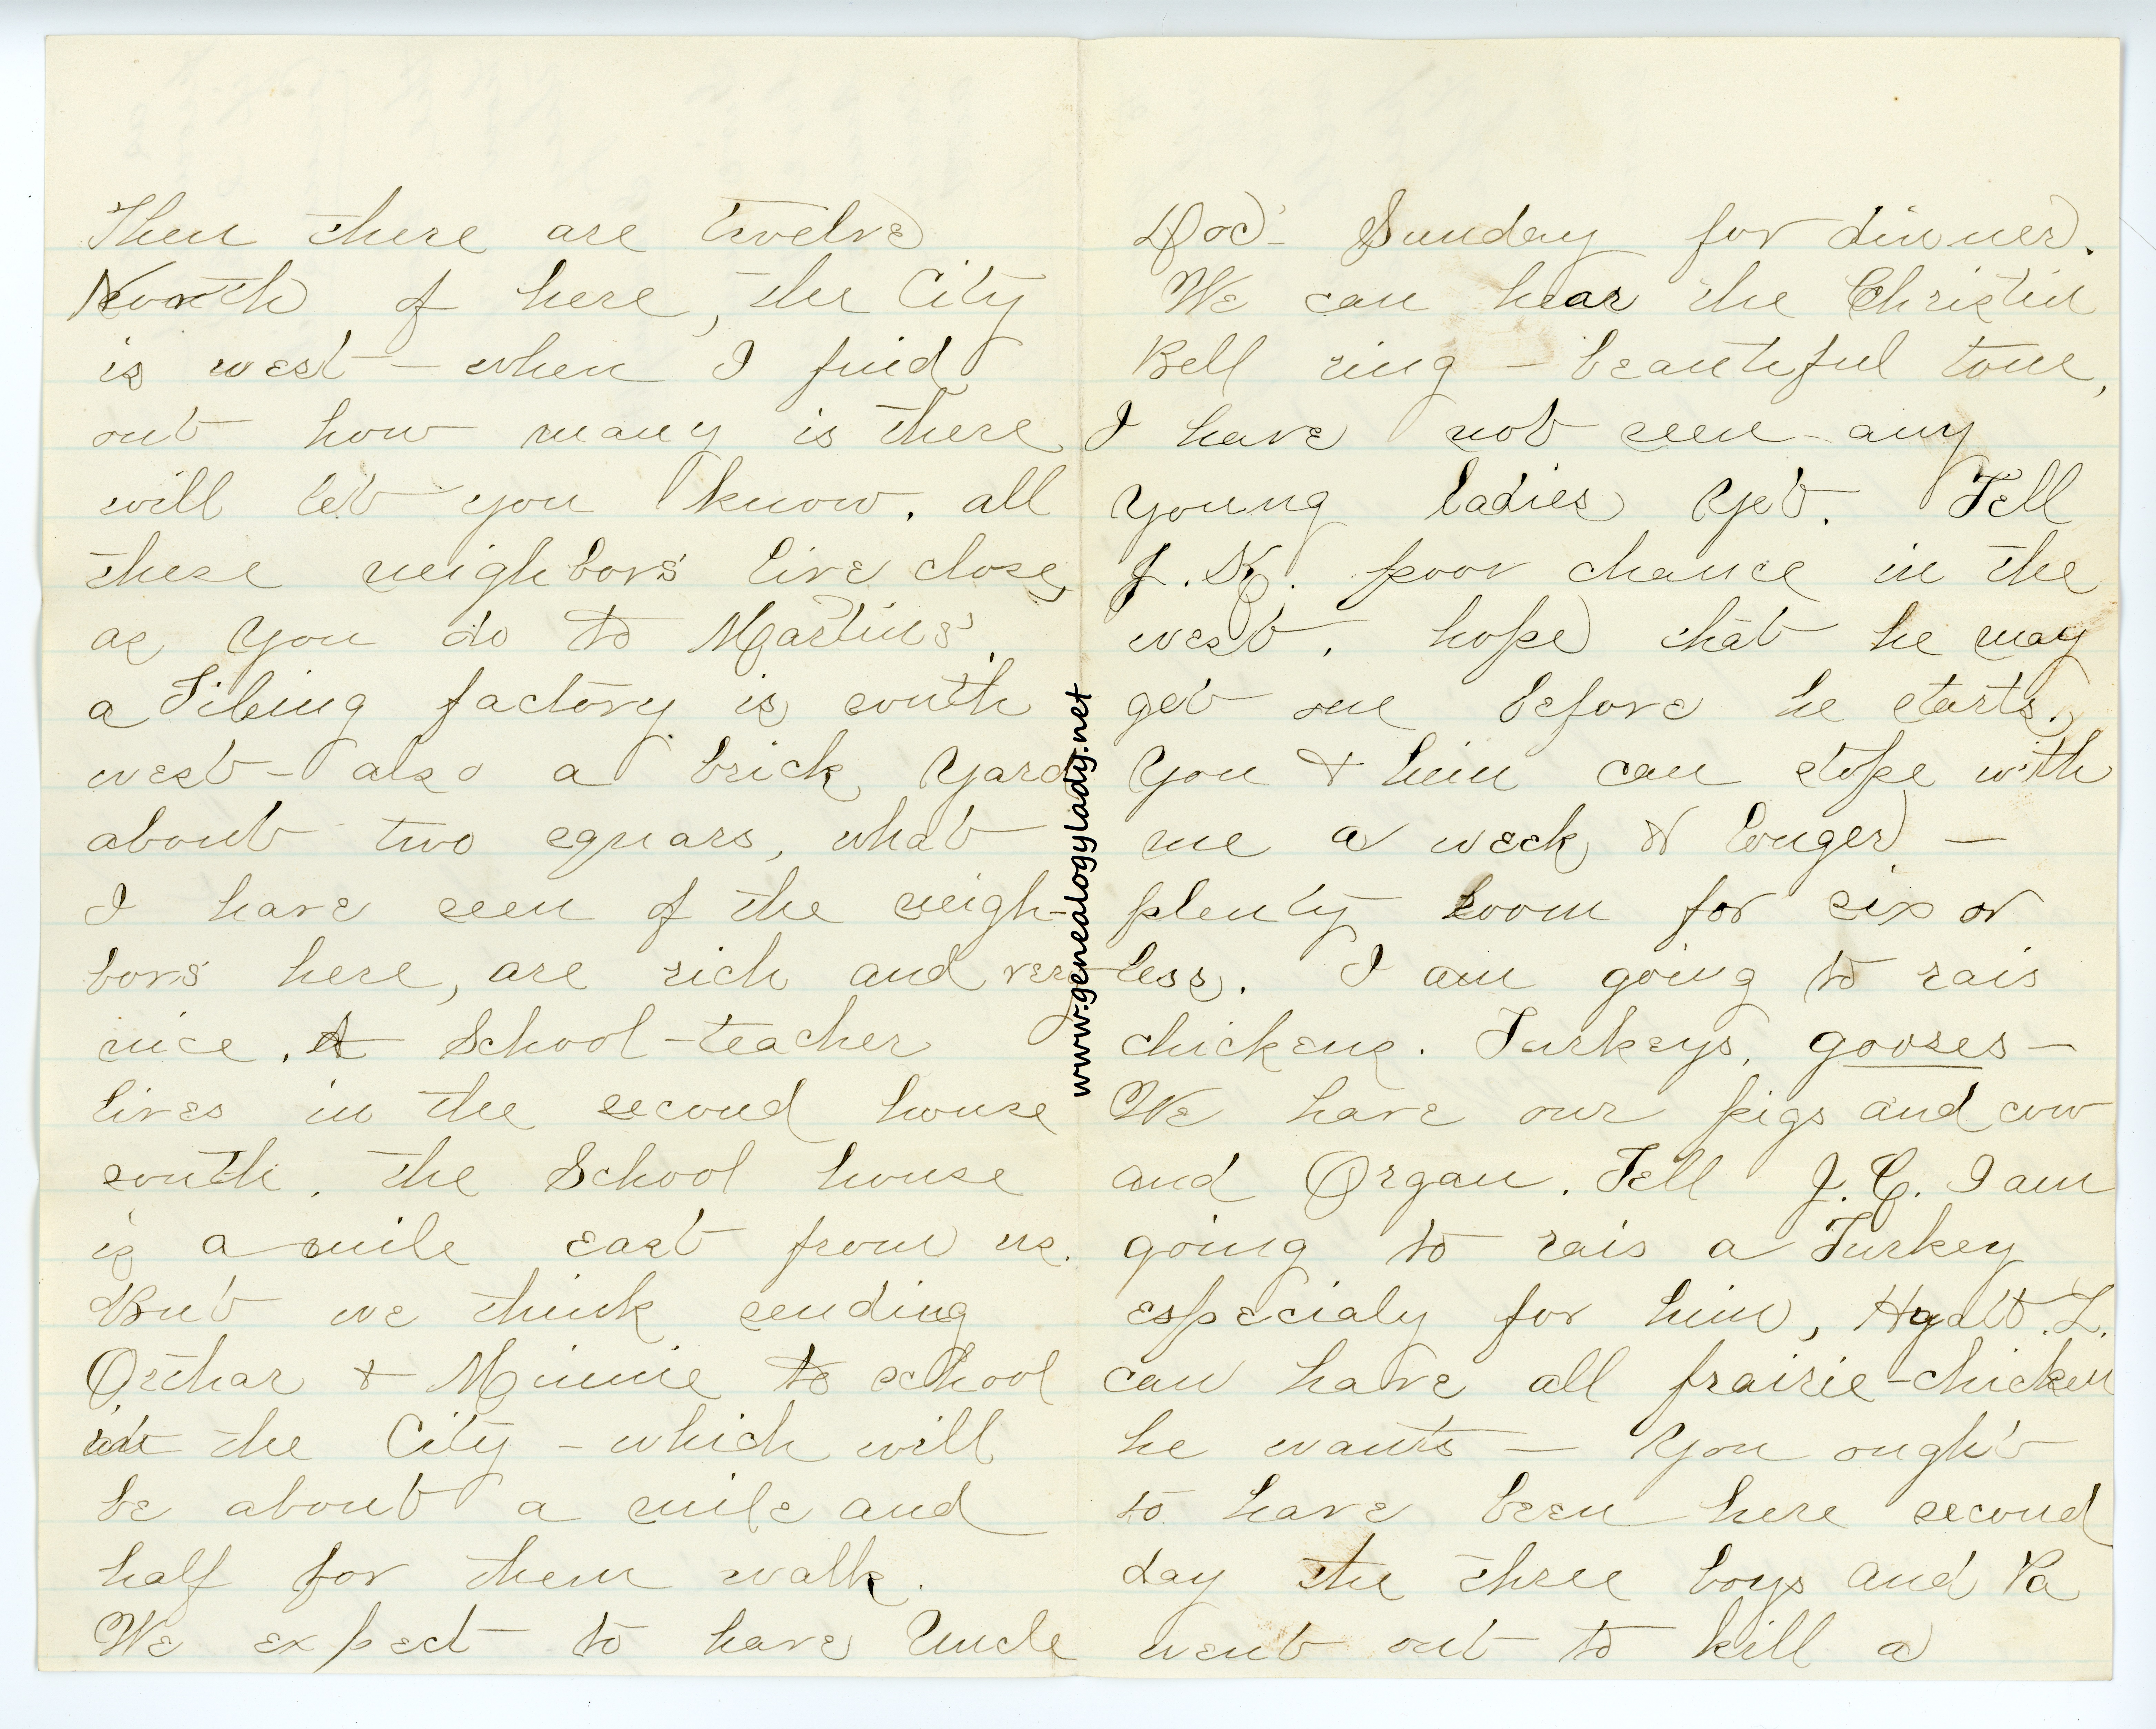 Then there are twelve
North of here, the City
is west – when I find
out how many is there
will let you know. all
these neighbors live close,
as you do to Martins'.
a Tileing factory is south
west – also a brick yard
about two squars, what
I have seen of the neigh-
bors here, are rich and very
nice. A School-teacher
lives in the second house
south. the School house
is a mile east from us.
But we think sending
Orthar & Minnie to school
in the City – which will
be about a mile and
half for them walk.
We expect to have Uncle
Doc- Sunday for dinner.
We can hear the Christin
Bell ring – beautiful tone,
I have not seen any
young ladies yet. Tell
J. K. poor chance in the
west, hope that he may
get one before he starts.
You & him can stope with
me a week & longer –
plenty room for six or
less. I am going to rais
chickens. Turkeys, gooses –
We have our pigs and cow
and Organ. Tell J. C. I am
going to rais a Turkey
especialy for him, Hyatt. L.
can have all prairie-chicken
he wants – You ought
to have been here second
day the three boys and Pa
went out to kill a
www.genealogylady.net